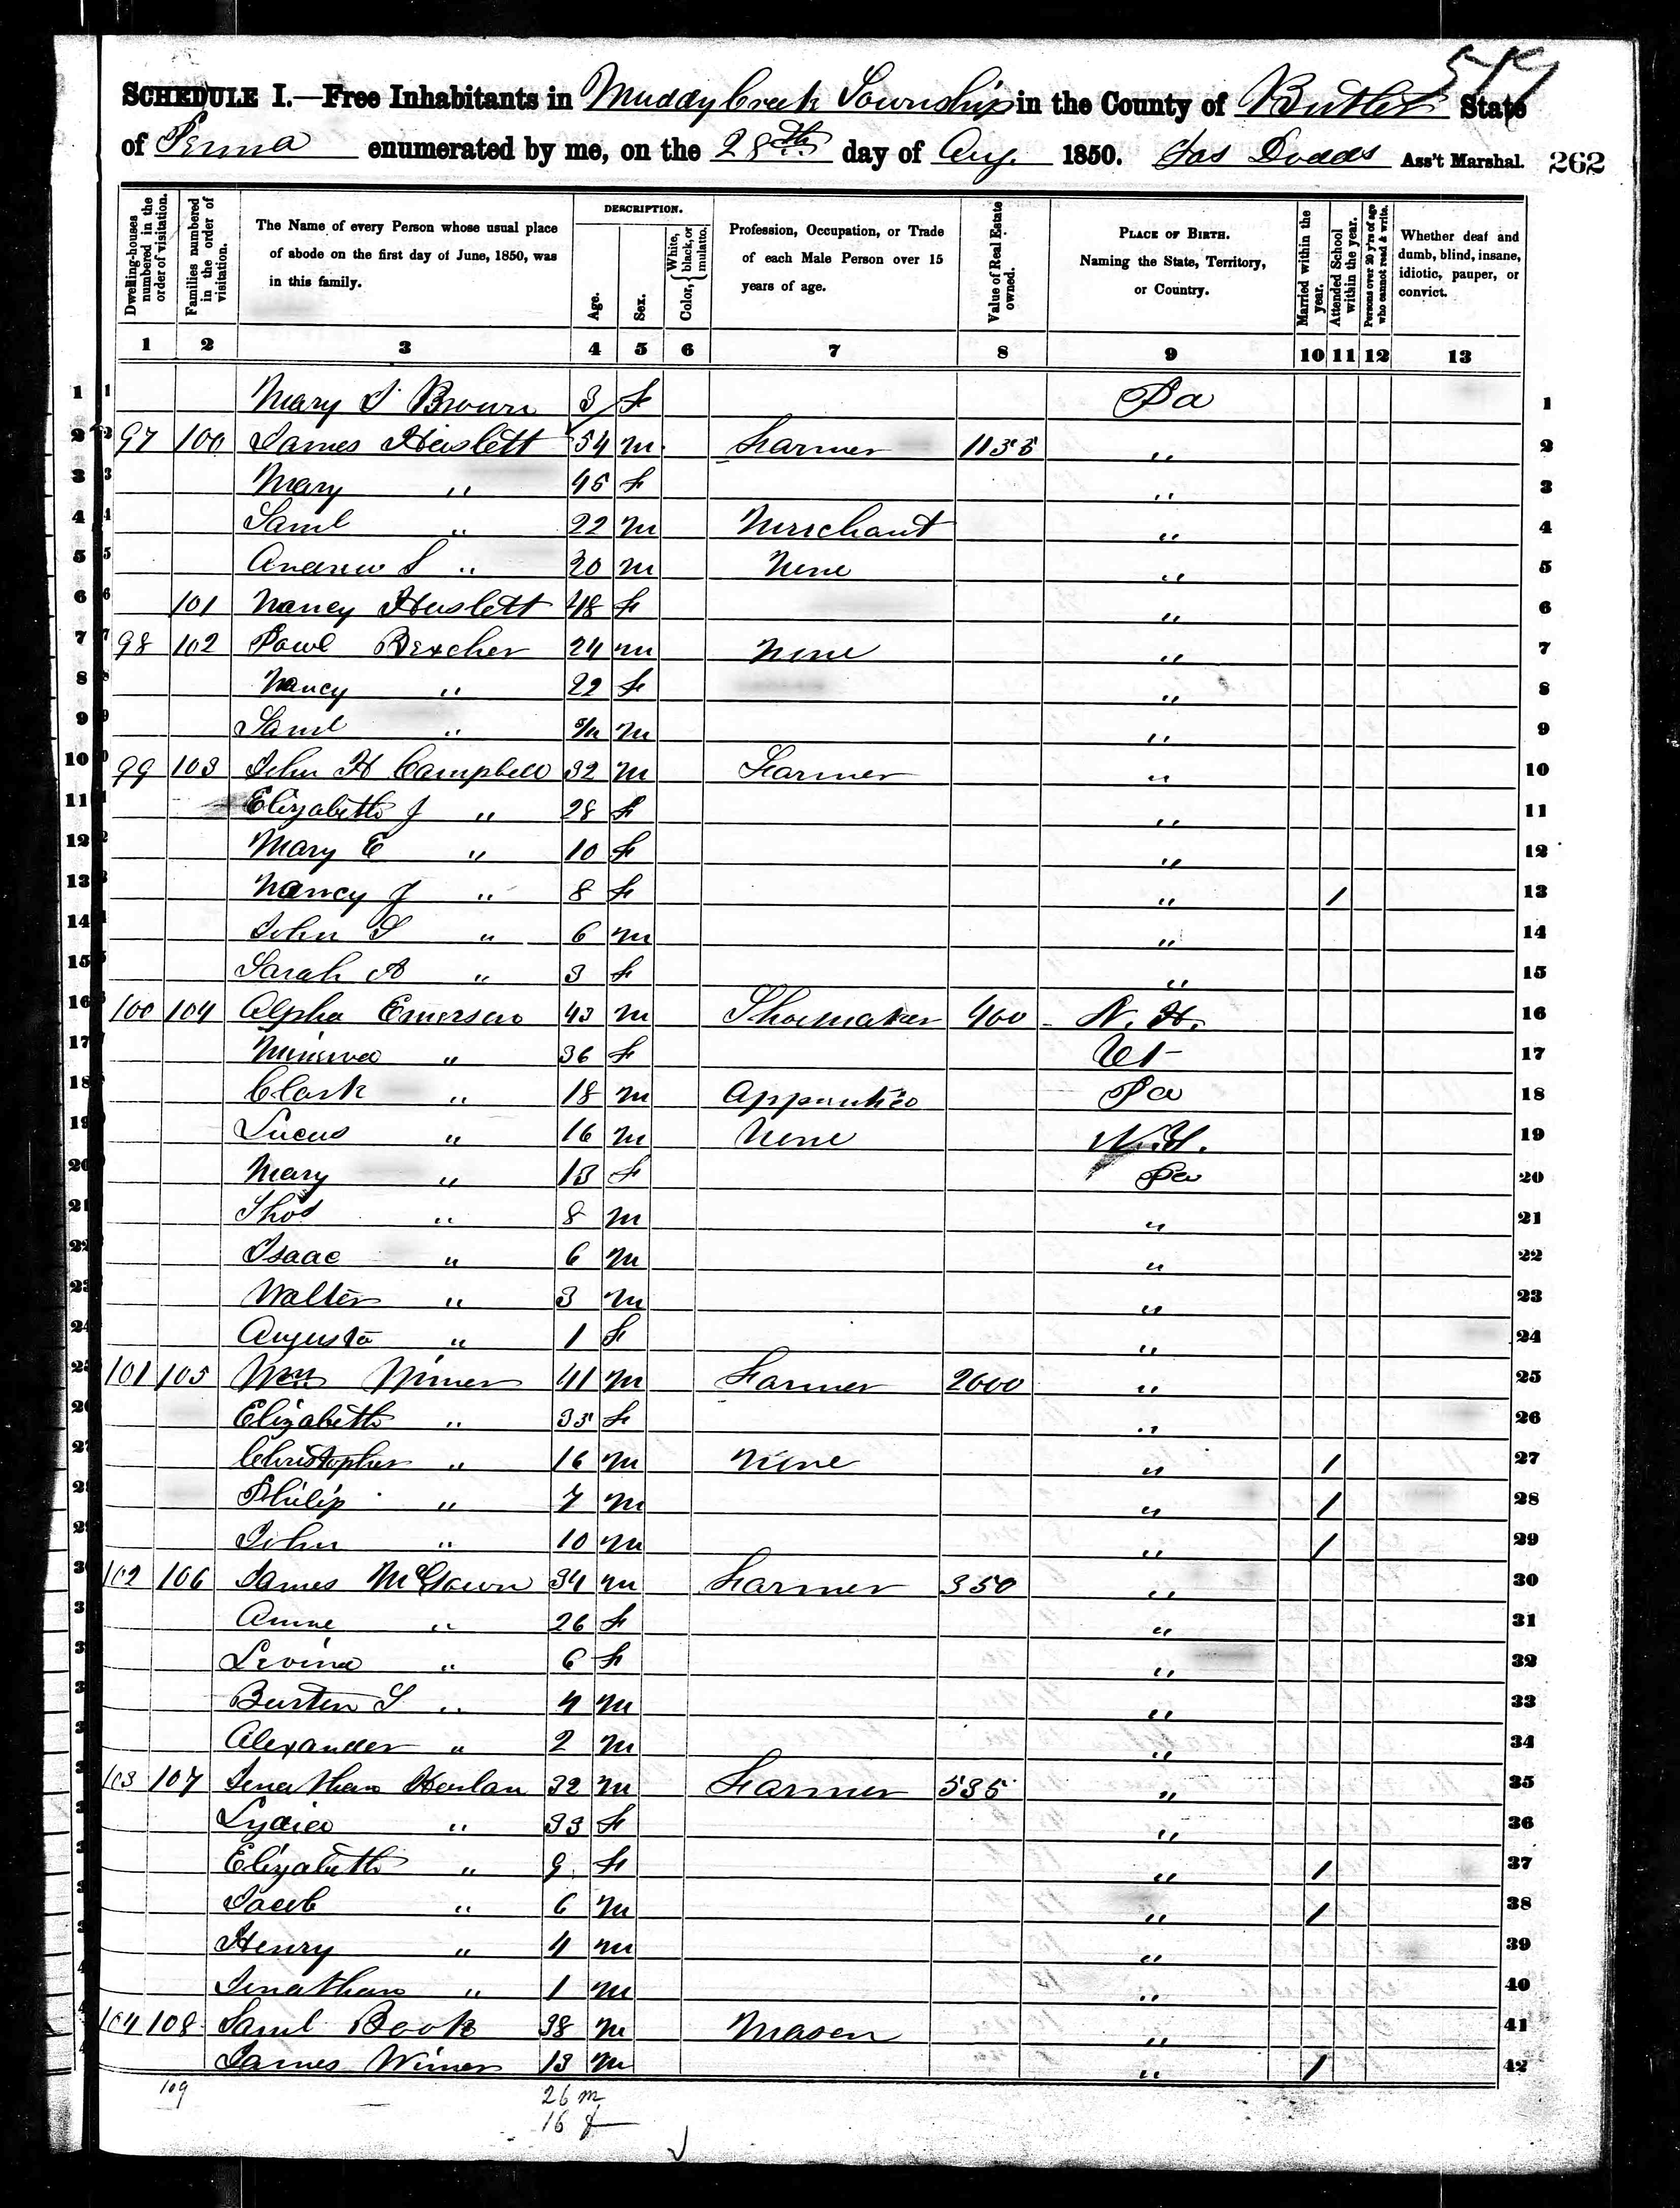 519
SCHEDULE I.—Free Inhabitants in Muddycreek Township in the County of Butler State
of Penna enumerated by me, on the 28th day of Aug. 1850. Jas Dodds Ass't Marshal. 262
Dwelling-houses numbered in the order of visitation. Families numbered in the order of visitation. The Name of every Person whose usual place of abode on the first day of June, 1850, was in this family. DESCRIPTION. Age. Sex. Color, { White, black, or mulatto. Profession, Occupation, or Trade of each Male Person over 15 years of age. Value of Real Estate owned. PLACE OF BIRTH. Naming the State, Territory, or Country. Married within the year. Attended School within the year. Persons over 20 y'rs of age who cannot read & write. Whether deaf and dumb, blind, insane, idiotic, pauper, or convict.
1 2 3 4 5 6 7 8 9 10 11 12 13
1 Mary J Brown 3 F Pa 1
2 97 100 James Heslett 54 M Farmer 1135 " 2
3 Mary " 45 F " 3
4 Saml " 22 M Merchant " 4
5 Andrew S " 20 M None " 5
6 101 Nancy Heslett 48 F " 6
7 98 102 Paul Bexcher 24 M None " 7
8 Nancy " 22 F " 8
9 Saml " M " 9
10 99 103 John H Campbell 32 M Farmer " 10
11 Elizabeth J " 28 F " 11
12 Mary E " 10 F " 12
13 Nancy J " 8 F " / 13
14 John S " 6 M " 14
15 Sarah A " 3 F " 15
16 100 104 Alpha Emerson 43 M Shoemaker 400 N. H. 16
17 Minerva " 36 F Vt 17
18 Clark " 18 M Apprentice Pa 18
19 Lucus " 16 M None N.H. 19
20 Mary " 13 F Pa 20
21 Thos " 8 M " 21
22 Isaac " 6 M " 22
23 Walter " 3 M " 23
24 Augusta " 1 F " 24
25 101 105 Wm Wimer 41 M Farmer 2000 " 25
26 Elizabeth " 35 F " 26
27 Christopher " 16 M None " / 27
28 Philip " 7 M " / 28
29 John " 10 M " / 29
30 102 106 James McGown 34 M Farmer 350 " 30
31 Anne " 26 F " 31
32 Levina " 6 F " 32
33 Burten S " 4 M " 33
34 Alexander " 2 M " 34
35 103 107 Jonathan Henlan 32 M Farmer 535 " 35
36 Lydia " 33 F " 36
37 Elizabeth " 9 F " / 37
38 Jacob " 6 M " / 38
39 Henry " 4 M " 39
40 Jonathan " 1 M " 40
41 104 108 Saml Book 38 M Mason " 41
42 James Wimer 13 M " / 42
109 26 m
16 f